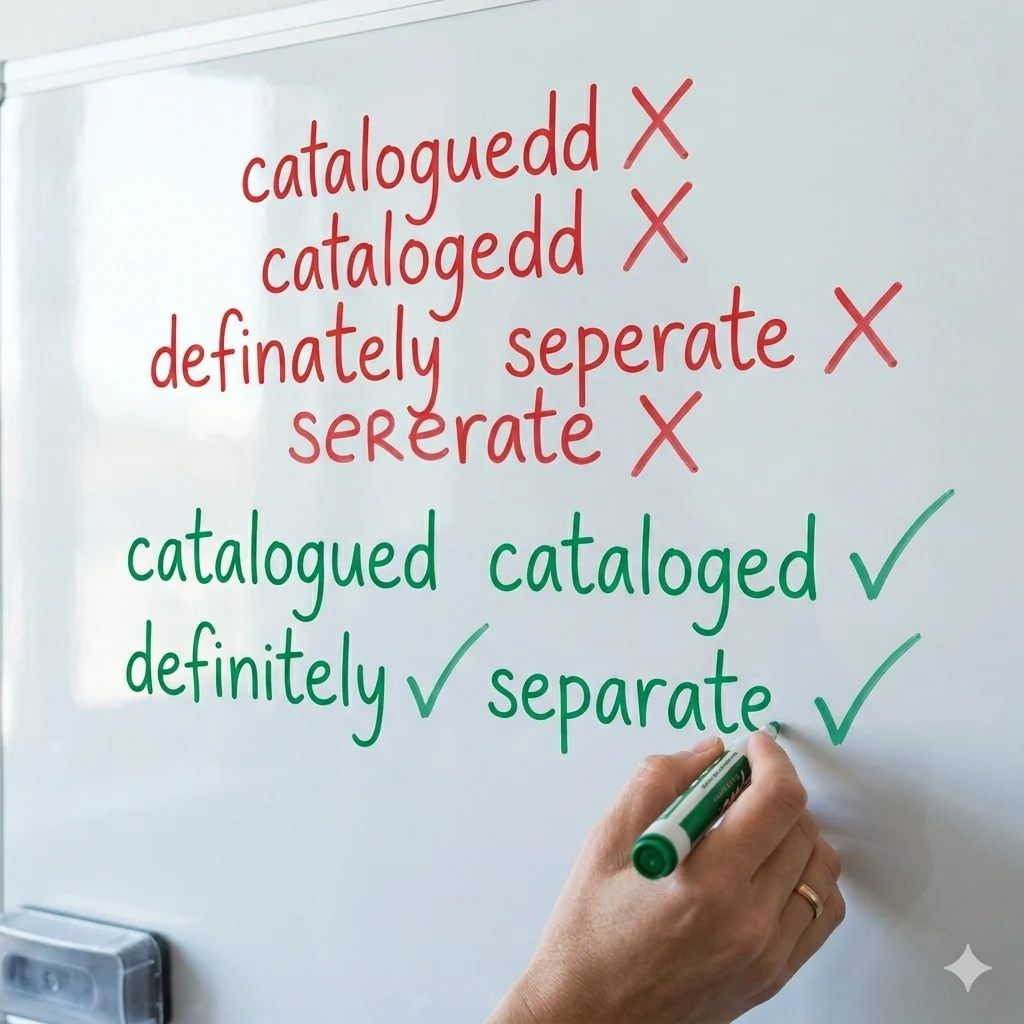 cataloguedd X
catalogedd X
definately seperate X
seRerate X
catalogued cataloged ✓
definitely ✓ separate ✓